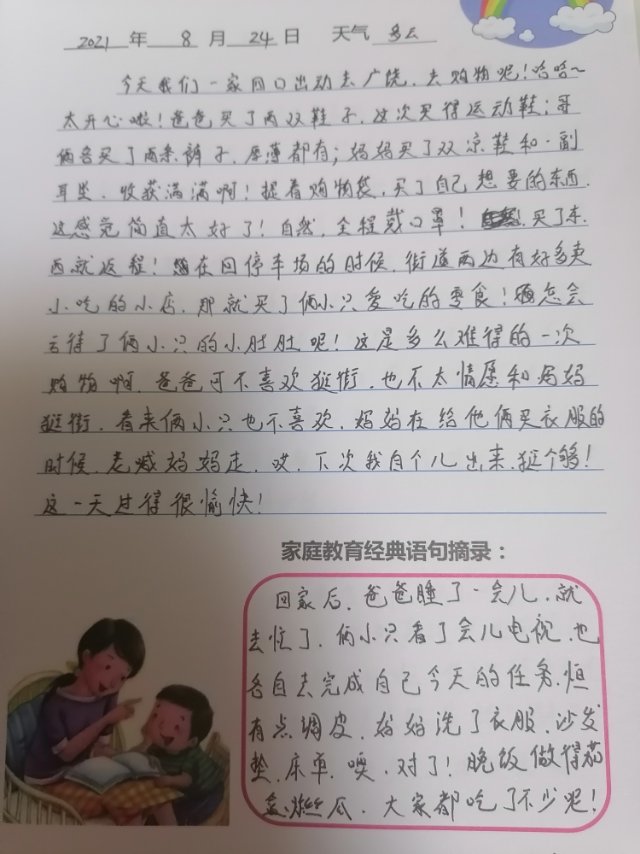 2021 年 8 月 24 日 天气 多云
今天我们一家四口出动去广饶,去购物呢!哈哈~
太开心啦!爸爸买了两双鞋子,这次买得运动鞋;哥
俩各买了两条裤子,厚薄都有;妈妈买了双凉鞋和一副
耳坠,收获满满啊!提着购物袋,买了自己想要的东西,
这感觉简直太好了!自然,全程戴口罩!买了东
西就返程!在回停车场的时候,街道两边有好多卖
小吃的小店,那就买了俩小只爱吃的零食!怎会
亏待了俩小只的小肚肚呢!这是多么难得的一次
购物啊,爸爸可不喜欢逛街,也不太情愿和妈妈
逛街,看来俩小只也不喜欢,妈妈在给他俩买衣服的
时候,老喊妈妈走,哎,下次我自个儿出来,逛个够!
这一天过得很愉快!
家庭教育经典语句摘录:
回家后,爸爸睡了一会儿,就
去忙了,俩小只看了会儿电视,也
各自去完成自己今天的任务,
有点调皮,妈妈洗了衣服、沙发
垫、床单,噢,对了!晚饭做得茄
丝瓜,大家都吃了不少呢!